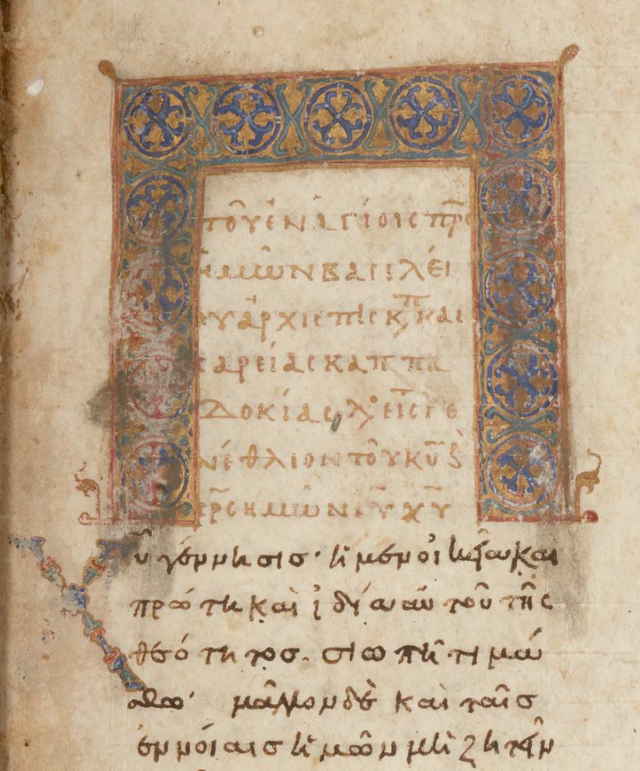 τοῦ ἐν ἁγίοις πρς
ἡμῶν βασιλεί
ου ἀρχιεπισκπ και
σαρείας καππα
δοκίας λ εἰς γε
νέθλιον τοῦ κυ ς
σρς ἡμῶν ιυ χυ
Χυ γέννησις· ἡ μὲν οἰκεία καὶ
πρώτη καὶ ἰδία αὐτοῦ τῆς
θεότητος. σιωπῆ τιμά
σθω· μᾶλλον δὲ καὶ ταῖς
ἐννοίαις ἡμῶν μὴ ζητεῖν